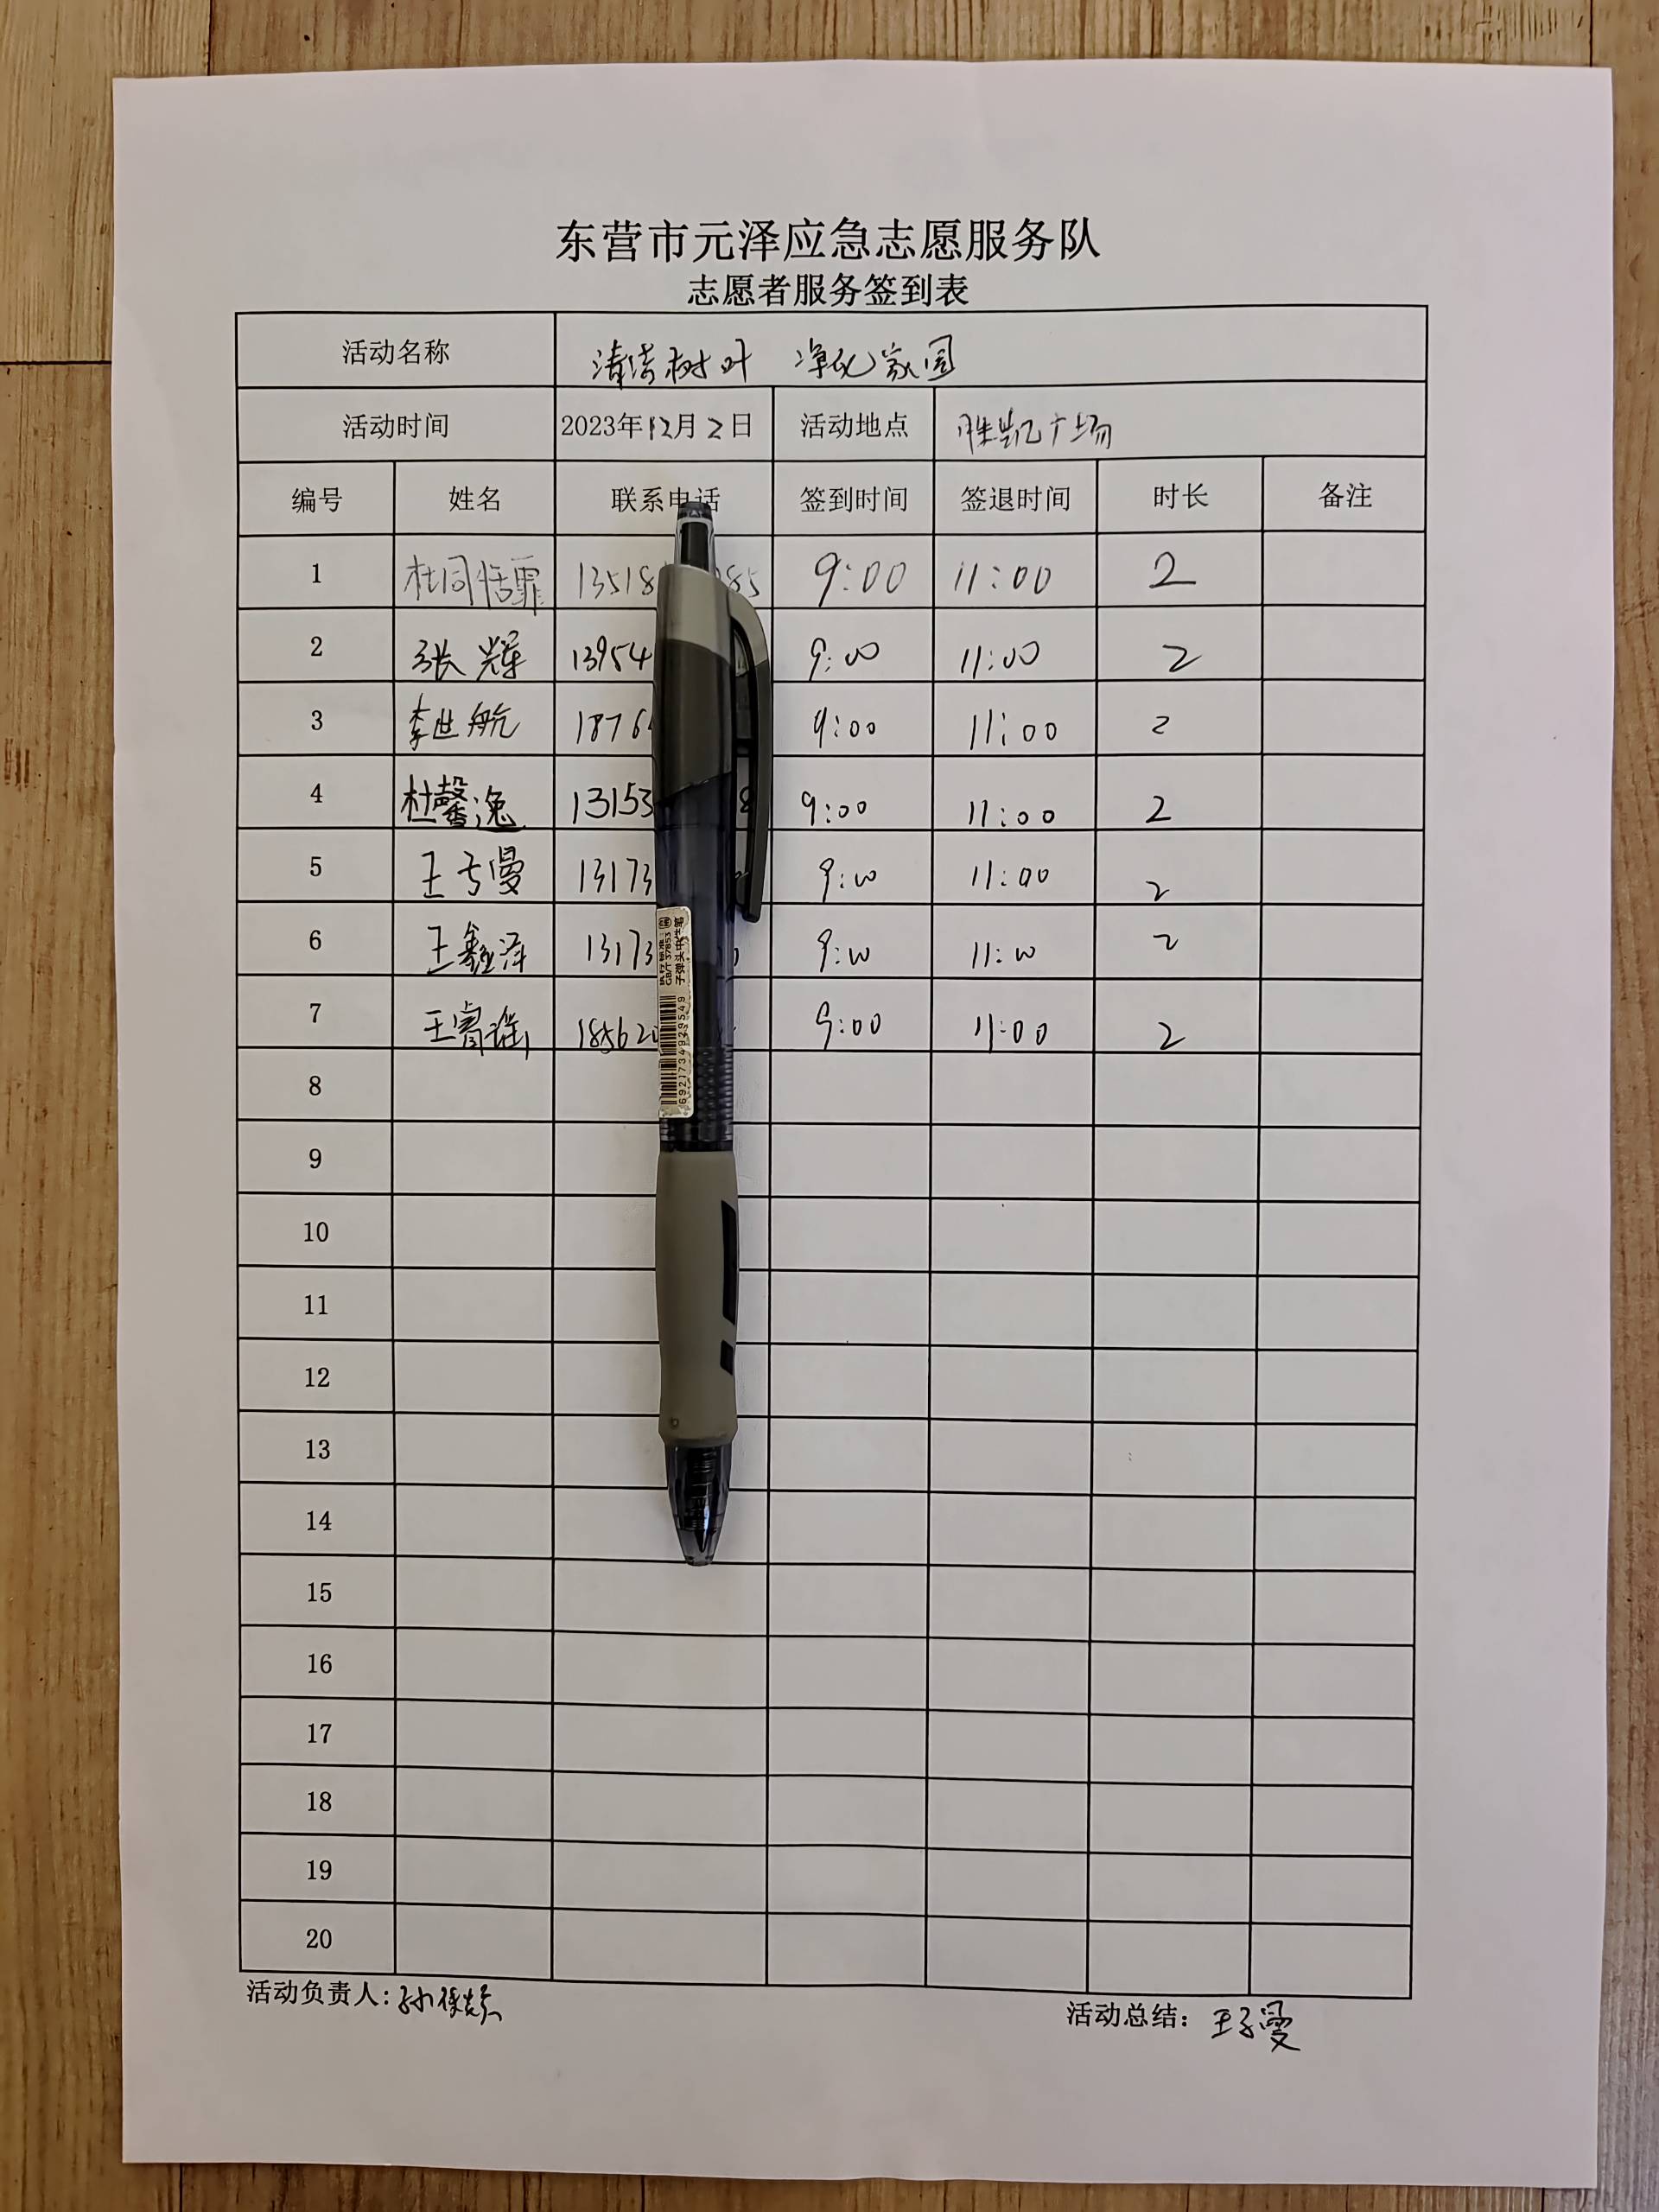 东营市元泽应急志愿服务队
志愿者服务签到表
活动名称 清洁树叶 净化家园
活动时间 2023年12月2日 活动地点 胜凯广场
编号 姓名 联系电话 签到时间 签退时间 时长 备注
1 杜同恬霏 13518 85 9:00 11:00 2
2 张辉 13954 9:00 11:00 2
3 李世航 1876 9:00 11:00 2
4 杜馨逸 13153 8 9:00 11:00 2
5 王子曼 13173 9:00 11:00 2
6 王鑫泽 13173 9:00 11:00 2
7 王睿谣 185620 9:00 11:00 2
8
9
10
11
12
13
14
15
16
17
18
19
20
活动负责人:孙
活动总结:王子雯
GB/T 37853
子弹头中性笔
6921734929549